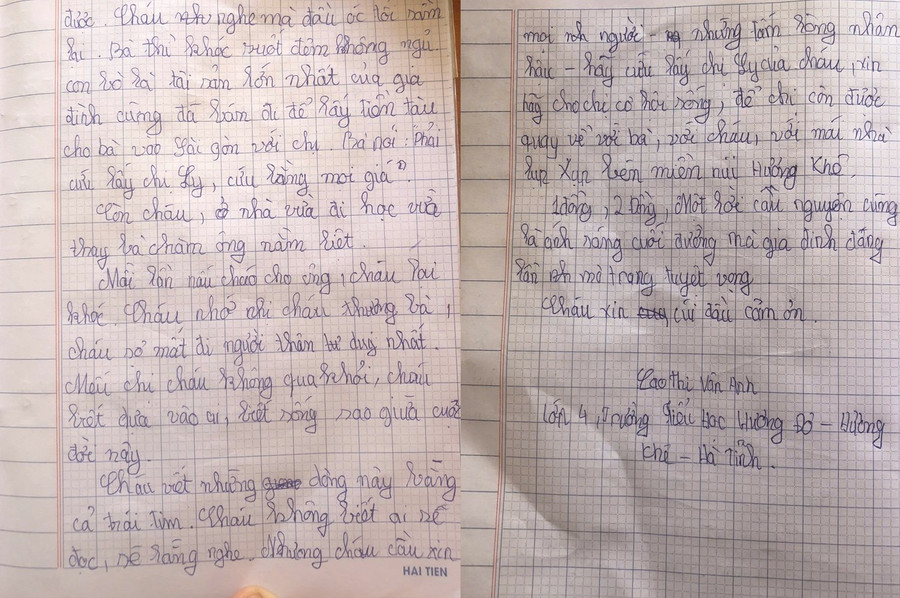 được. Cháu nghe mà đầu óc tối sầm
lại. Bà thì khóc suốt đêm không ngủ.
con bò là tài sản lớn nhất của gia
đình cũng đã bán đi để lấy tiền tàu
cho bà vào Sài gòn với chị. Bà nói: "Phải
cứu lấy chị Ly, cứu bằng mọi giá".
Còn cháu, ở nhà vừa đi học vừa
thay bà chăm ông nằm liệt.
Mỗi lần nấu cháo cho ông, cháu lại
khóc. Cháu nhớ chị cháu thương bà,
cháu sợ mất đi người thân duy nhất.
Nếu chị cháu không qua khỏi, cháu
biết dựa vào ai, biết sống sao giữa cuộc
đời này.
Cháu viết những dòng này bằng
cả trái tim. Cháu không biết ai sẽ
đọc, sẽ lắng nghe. Nhưng cháu cầu xin
HAI TIEN
mọi người - những tấm lòng nhân
hậu - hãy cứu lấy chị Ly của cháu, xin
hãy cho chị cơ hội sống, để chị còn được
quay về với bà, với cháu, với mái nhà
lụp Xụp trên miền núi Hương Khê.
1 đồng, 2 đồng, Một lời cầu nguyện cũng
là ánh sáng cuối đường mà gia đình đang
lần mò trong tuyệt vọng
Cháu xin cúi đầu cảm ơn.
Cao Thị Vân Anh
Lớp 4, Trường Tiểu Học Hương Đô - Hương
Khê - Hà Tĩnh.